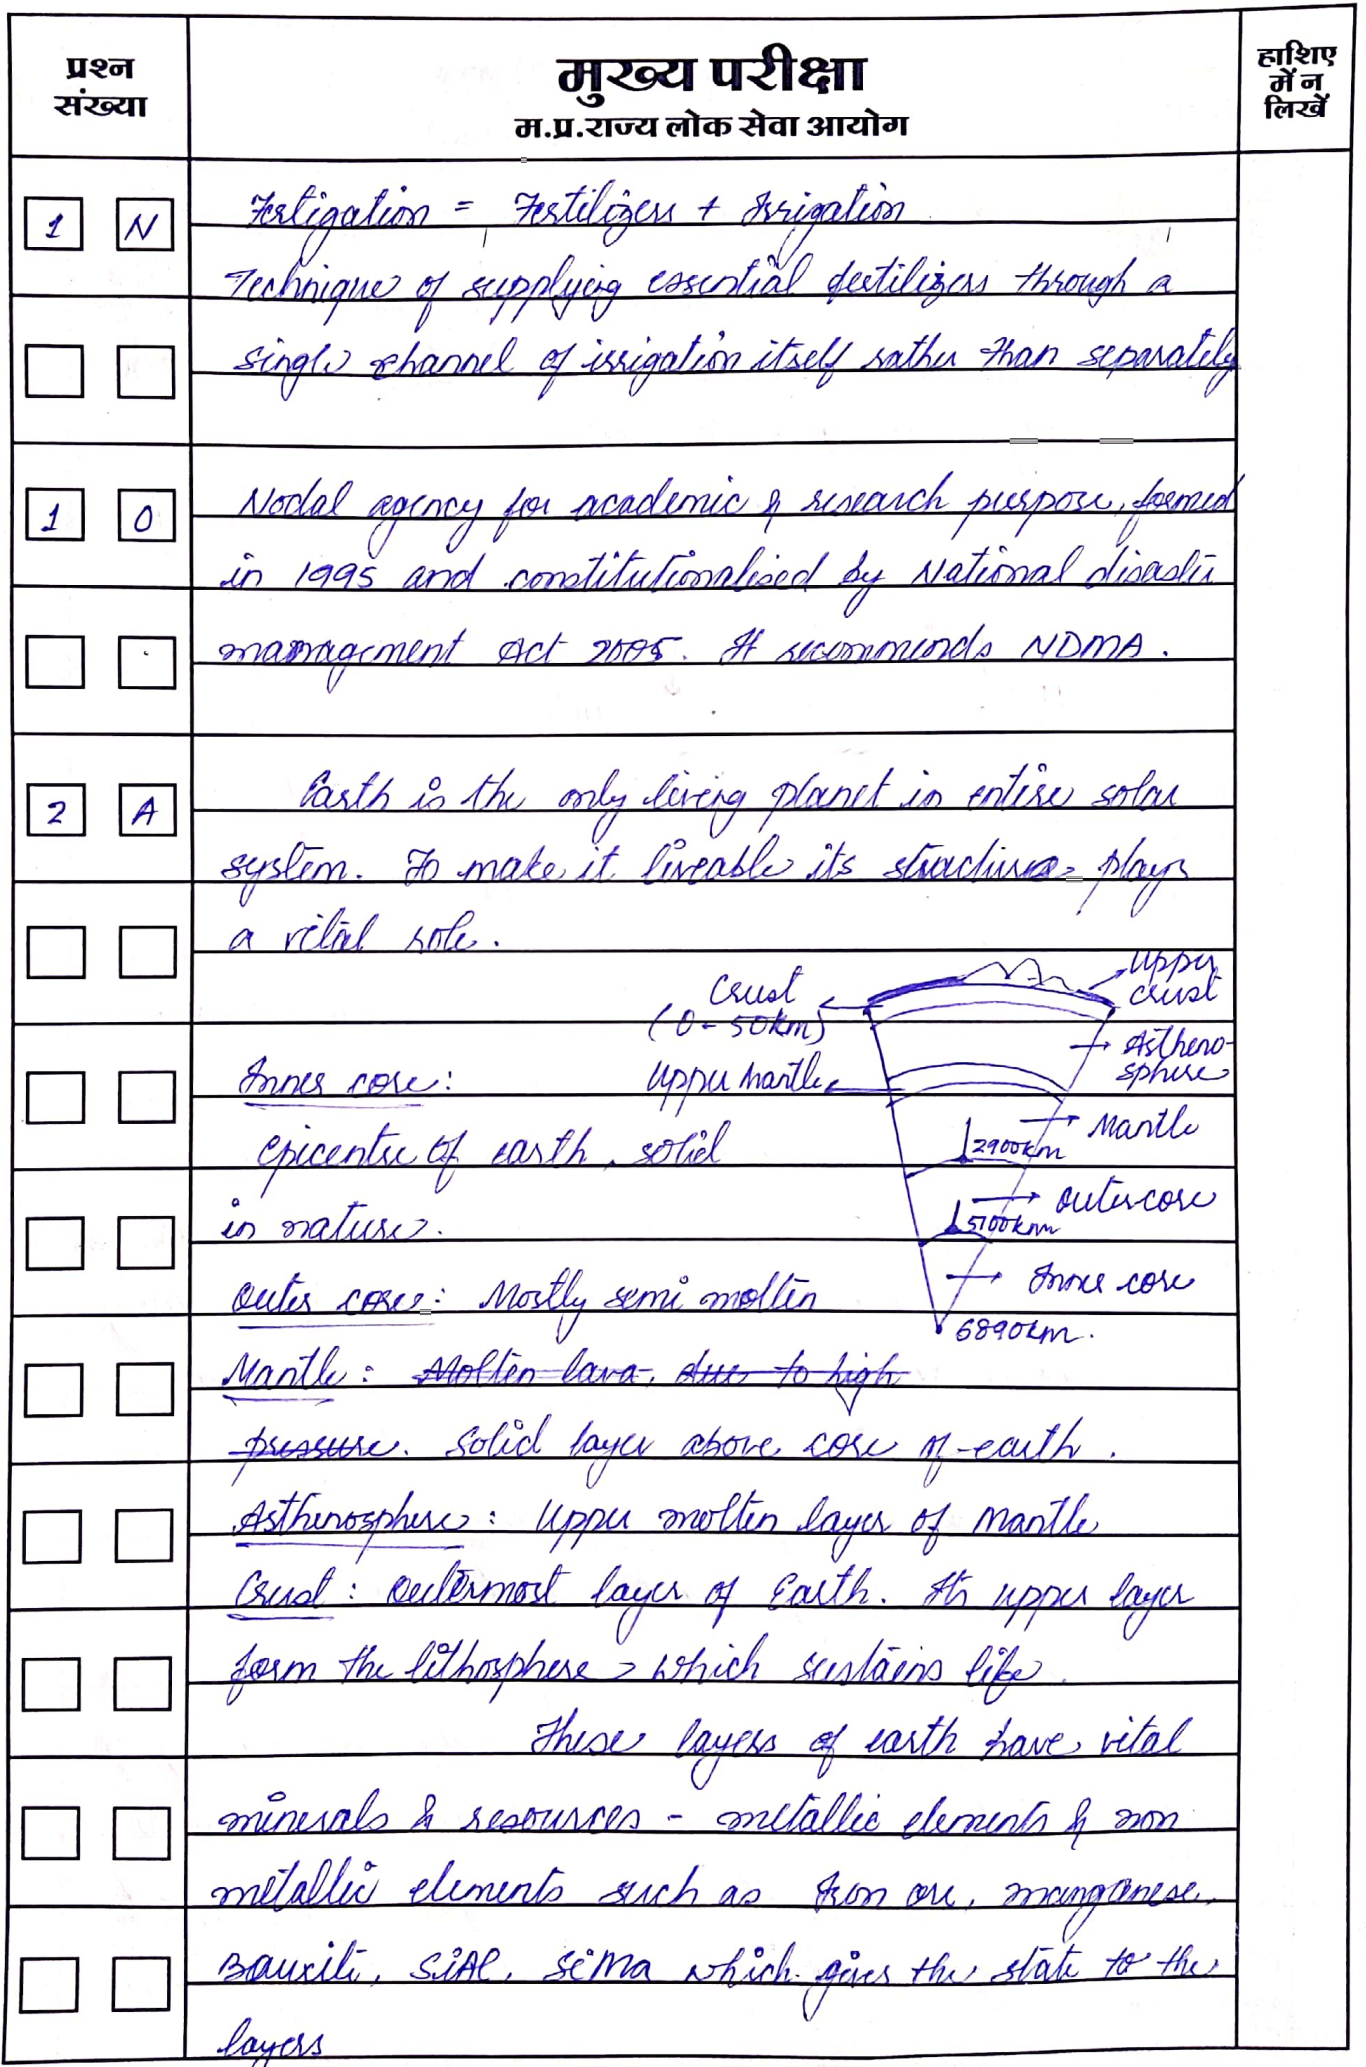 प्रश्न
संख्या
मुख्य परीक्षा
म.प्र.राज्य लोक सेवा आयोग
हाशिए
में न
लिखें
1 N
Fertigation = Fertilizers + Irrigation
Technique of supplying essential fertilizers through a
single channel of irrigation itself rather than separately
1 O
Nodal agency for academic & research purpose, formed
in 1995 and constitutionalised by National disaster
management Act 2005. It recommends NDMA.
2 A
Earth is the only living planet in entire solar
system. To make it liveable its structure plays
a vital role.
Crust
(0-50km)
Upper
crust
Astheno-
sphere
Upper Mantle
Mantle
2900km
Outercore
5100km
Inner core
6890km.
Inner core:
epicentre of earth, solid
in nature.
Outer core: Mostly semi molten
Mantle: Molten lava, due to high
pressure. Solid layer above core of earth.
Asthenosphere: Upper molten layer of Mantle
Crust: Outermost layer of Earth. Its upper layer
form the lithosphere which sustains life.
These layers of earth have vital
minerals & resources - metallic elements & non
metallic elements such as Iron ore, manganese,
Bauxite, SiAl, SiMa which gives the state to the
layers